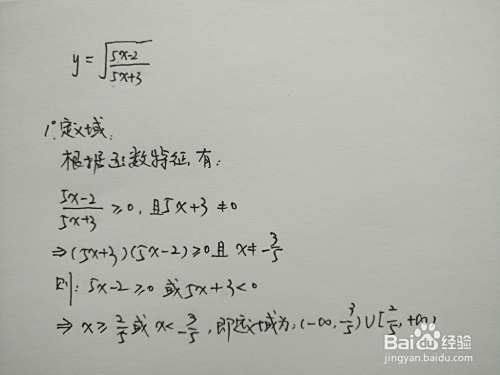 y = √((5x-2)/(5x+3))
1°.定义域:
根据函数特征,有:
(5x-2)/(5x+3) ≥0,且5x+3≠0
⇒(5x+3)(5x-2)≥0且 x≠-3/5
则:5x-2≥0 或5x+3<0
⇒ x≥2/5 或 x<-3/5,即定义域为:(-∞,-3/5)∪[2/5,+∞)
Baidu经验
jingyan.baidu.com